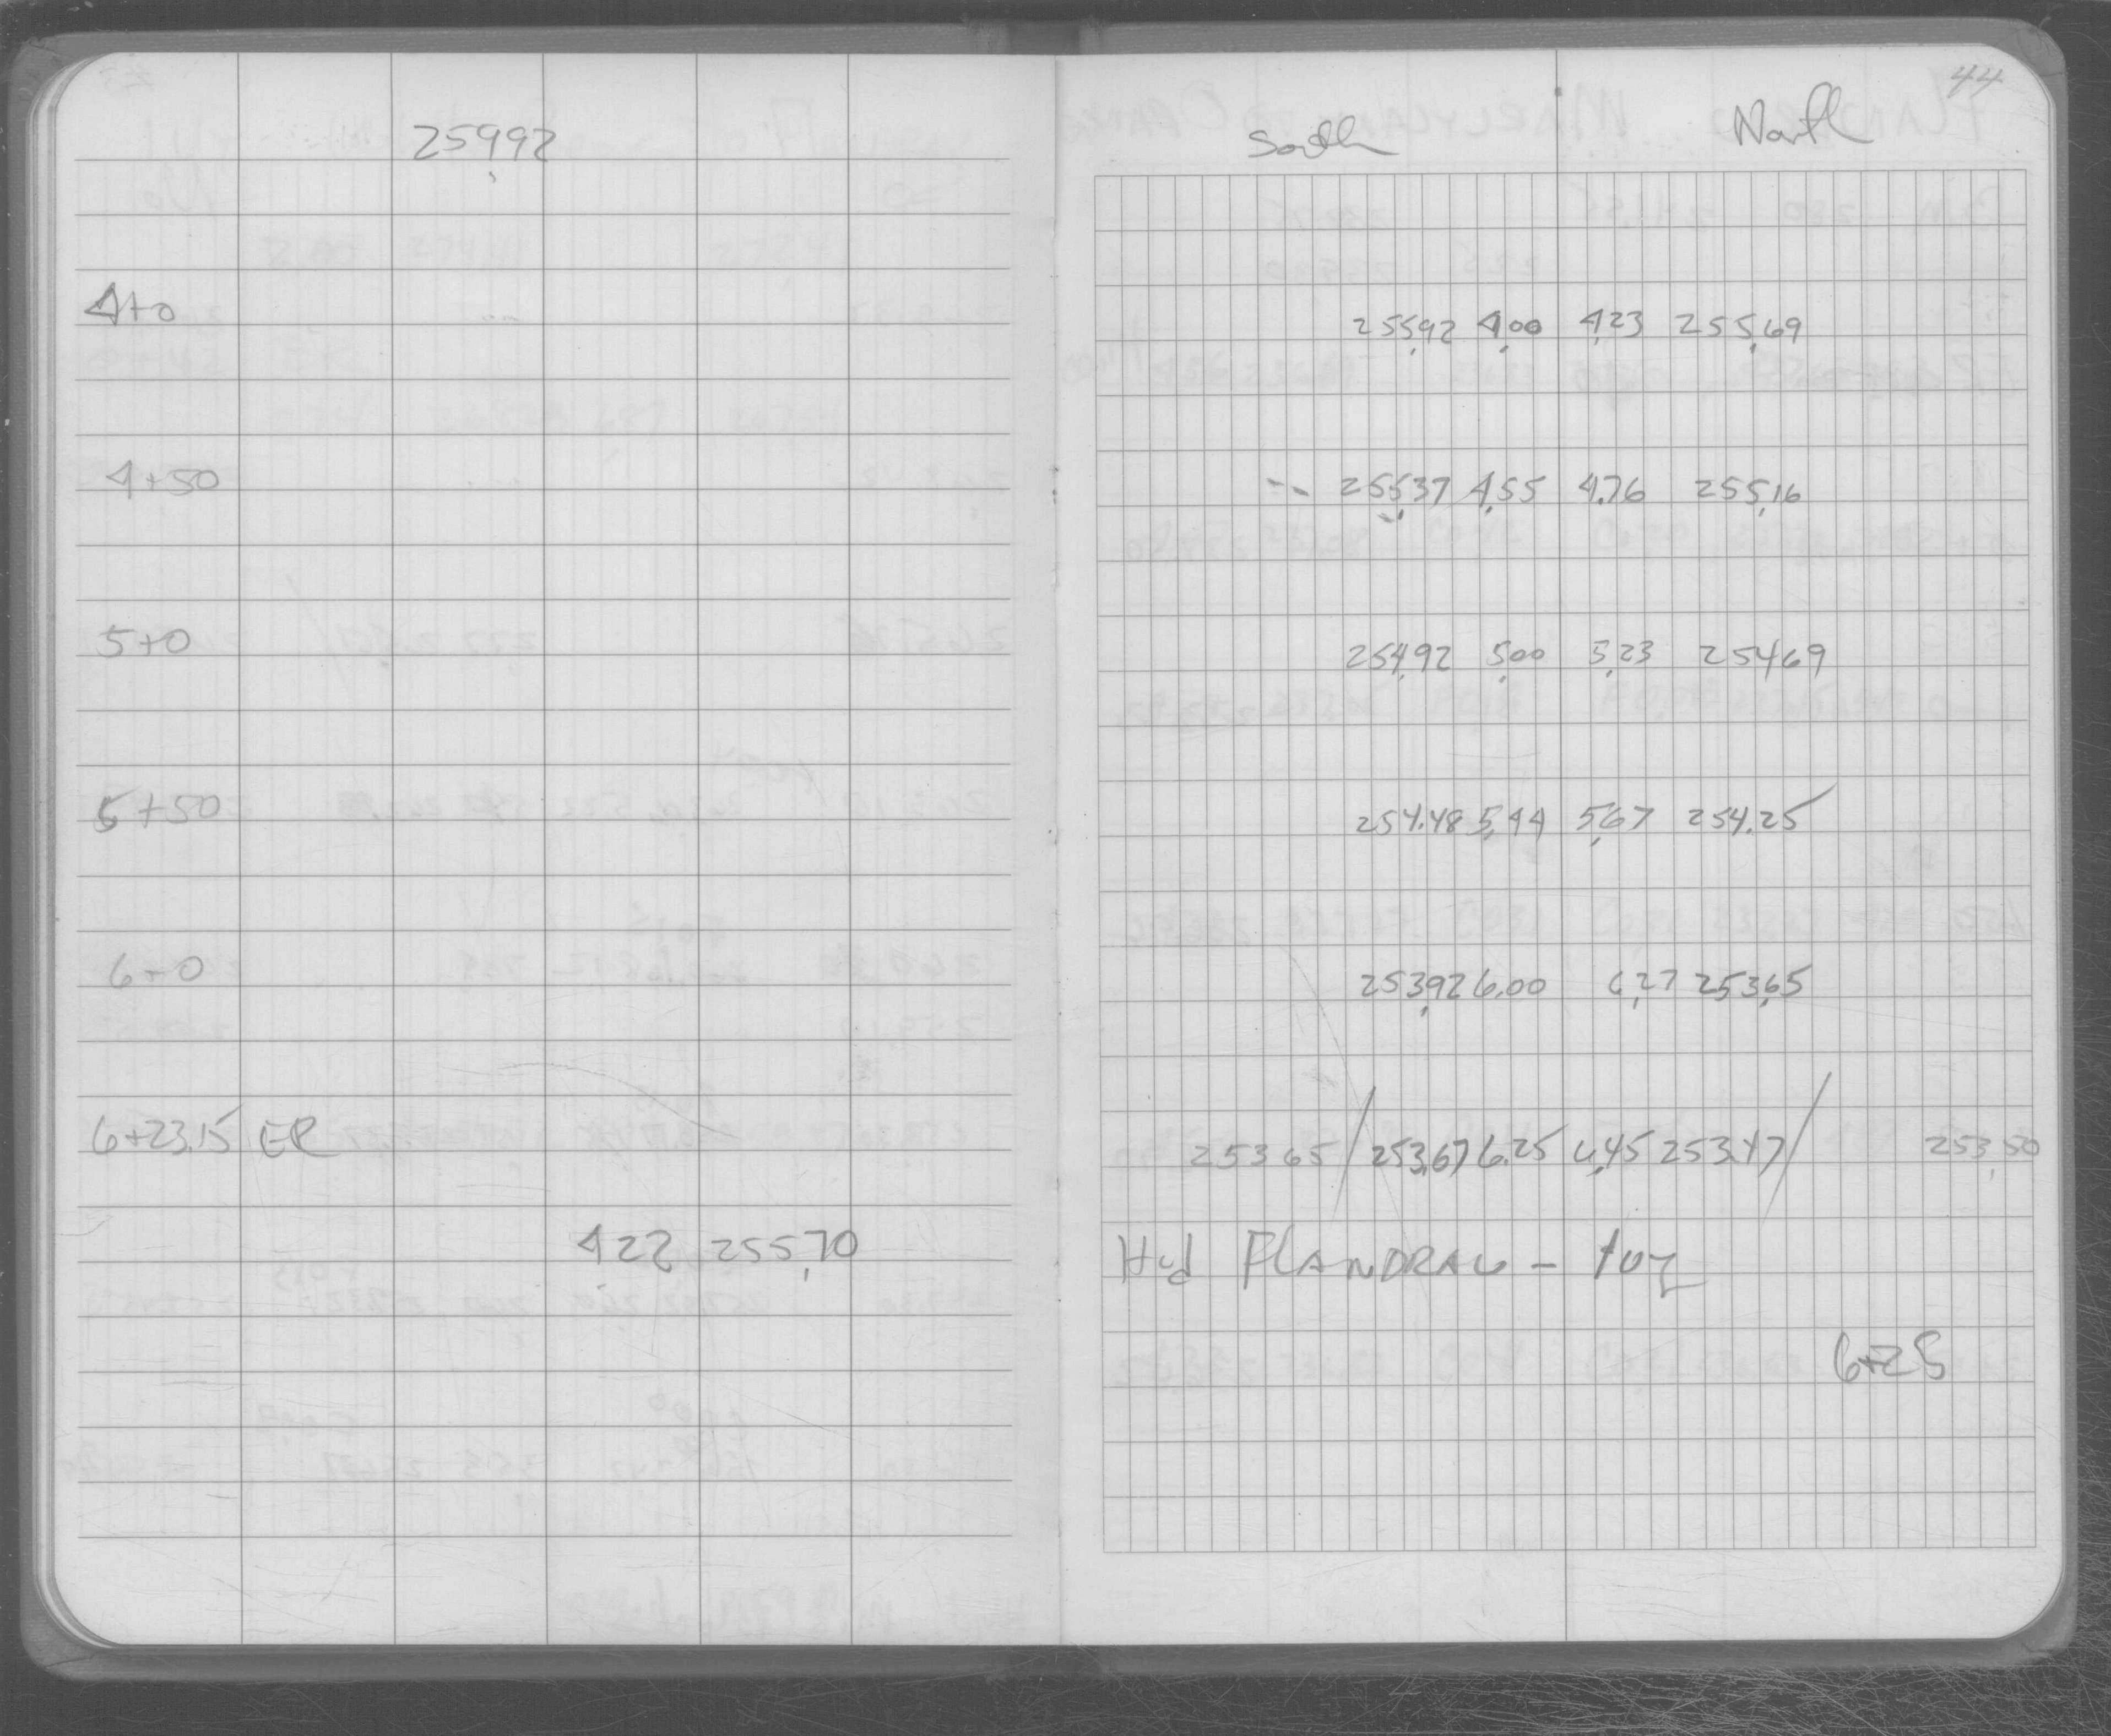 44
259.92 South North
4+0 255.92 4.00 4.23 255.69
4+50 -- 255.37 4.55 4.76 255.16
5+0 254.92 5.00 5.23 254.69
5+50 254.48 5.44 5.67 254.25
6+0 253.92 6.00 6.27 253.65
6+23.15 ER 253.65 / 253.67 6.25 6.45 253.47 / 253.50
4.22 255.70 Hyd FLANDRAU -
6+25